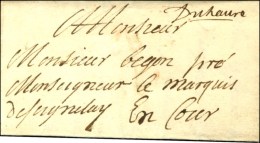 A Monsieur
Du havre
Monsieur begon pré
Monseigneur le marquis
de seignelay En Cour